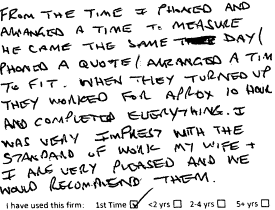 FROM THE TIME I PHONED AND
ARRANGED A TIME TO MEASURE
HE CAME THE SAME DAY/
PHONED A QUOTE/ ARRANGED A TIM
TO FIT. WHEN THEY TURNED UP
THEY WORKED FOR APROX 10 HOUR
AND COMPLETED EVERYTHING. I
WAS VERY IMPREST WITH THE
STANDARD OF WORK MY WIFE +
I ARE VERY PLEASED AND WE
WOULD RECOMMEND THEM.
I have used this firm: 1st Time ☑ <2 yrs ☐ 2-4 yrs ☐ 5+ yrs ☐